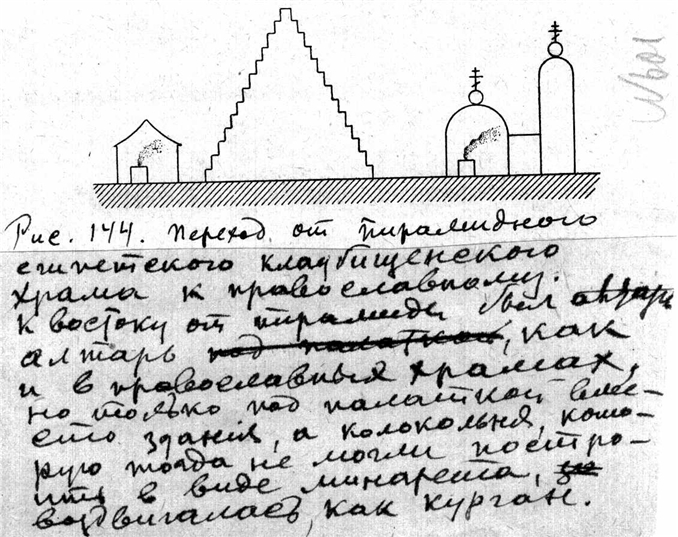 Рис. 144. Переход от пирамидного
египетского кладбищенского
храма к православному.
К востоку от пирамиды был алтарь
алтарь под палаткой, как
и в православных храмах,
но только под палаткой вме-
сто здания, а колокольня, кото-
рую тогда не могли постро-
ить в виде минарета,
воздвигалась, как курган.